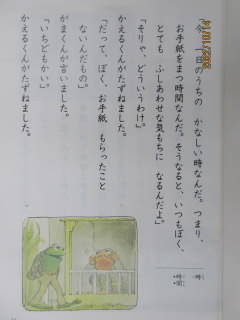 「今、一日のうちの　かなしい時なんだ。つまり、
お手紙をまつ時間なんだ。そうなると、いつもぼく、
とても　ふしあわせな気もちに　なるんだよ。」
「そりゃ、どういうわけ。」
かえるくんがたずねました。
「だって、ぼく、お手紙　もらったこと
ないんだもの。」
がまくんが言いました。
「いちどもかい。」
かえるくんがたずねました。